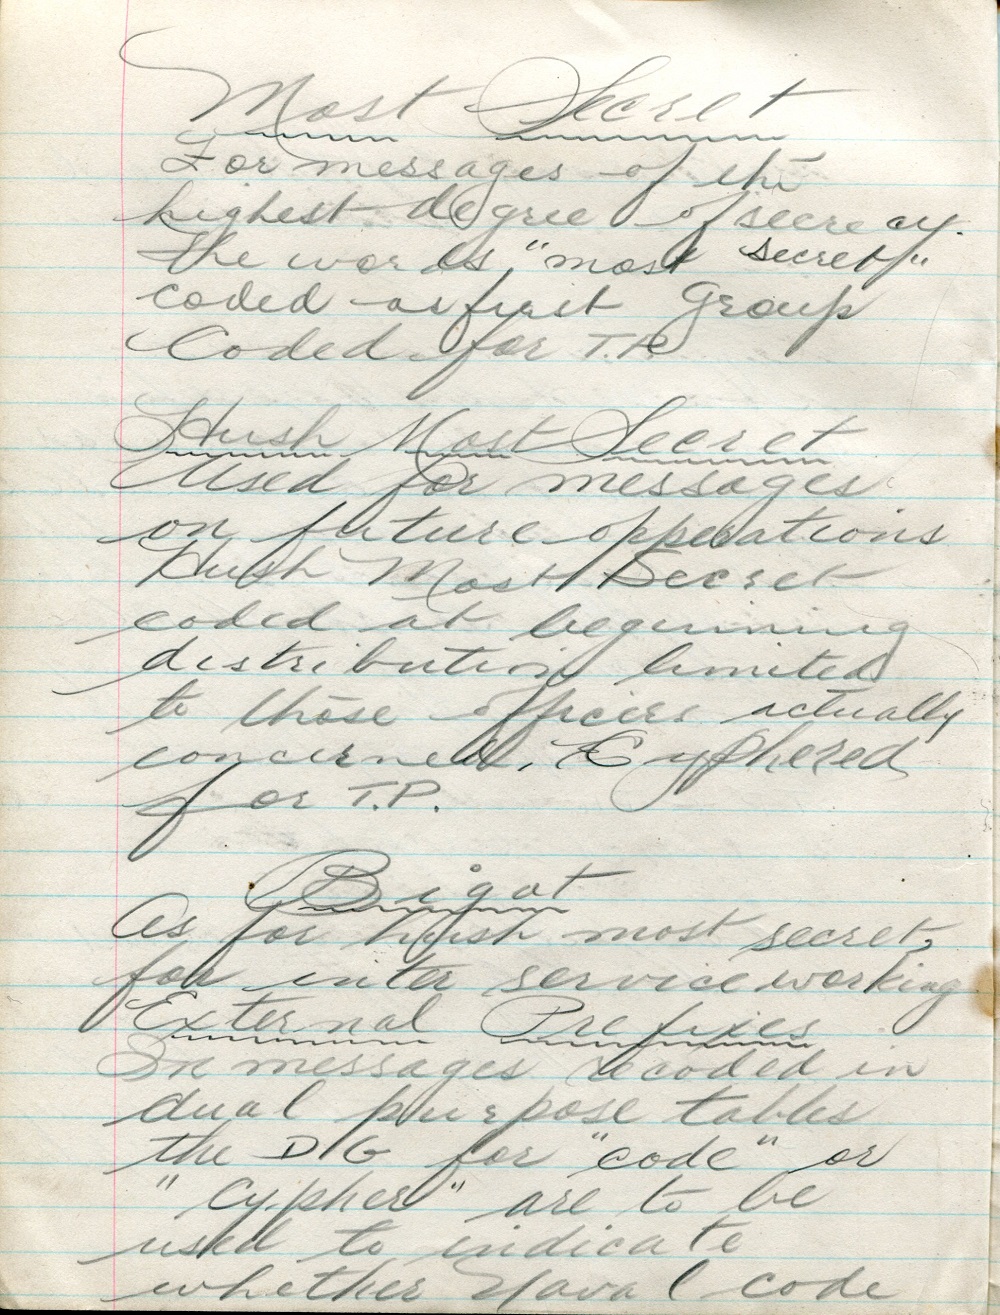 Most Secret
For messages of the
highest degree of secrecy.
The words, "most secret"
coded as first Group
Coded for T.P.
Hush Most Secret
Used for messages
on future opperations
Hush Most Secret
coded at beginning
distribution limited
to those officers actually
concerned, Cyphered
for T.P.
Bigot
As for hush most secret,
for inter service working
External Prefixes
In messages recoded in
dual purpose tables
the D/G for "code" or
"Cypher" are to be
used to indicate
whether Naval code